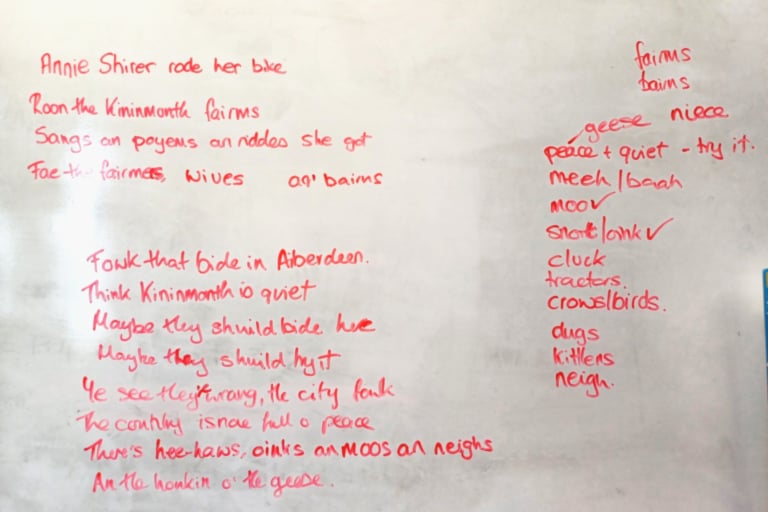 Annie Shirer rode her bike
Roon the Kininmonth fairms
Sangs an poyems an riddles she got
Fae the fairmers, wives an' bairns
Fowk that bide in Aiberdeen.
Think Kininmonth is quiet
Maybe they shuild bide here
Maybe they shuild try it
Ye see they're wrang, the city fowk
The country isnae full o peace
There's hee-haws, oinks an moos an neighs
An the honkin o' the geese.
fairms
bairns
geese niece
peace + quiet - try it.
meeh/baah
moo ✓
snort/oink ✓
cluck
tractors.
crows/birds.
dugs
kittlens
neigh.